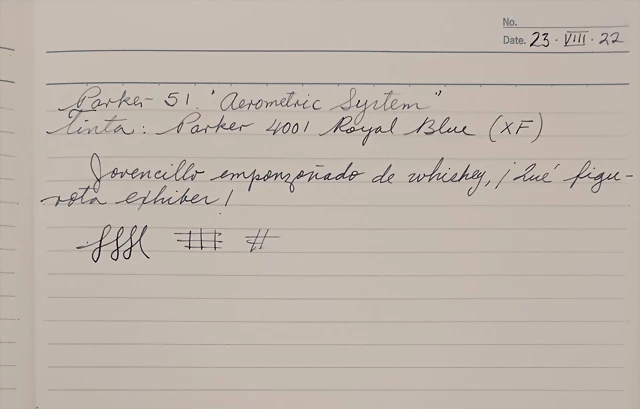 No.
Date. 23 · VIII · 22
Parker 51. "Aerometric System"
Tinta: Parker 4001 Royal Blue (XF)
Jovencillo emponzoñado de whiskey, ¡Qué figu-
rota exhiber!